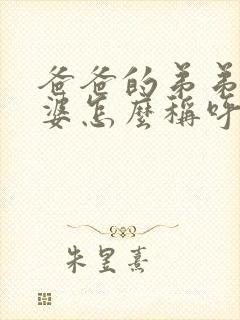 爸爸的弟弟
婆怎麼稱呼
朱昱熹